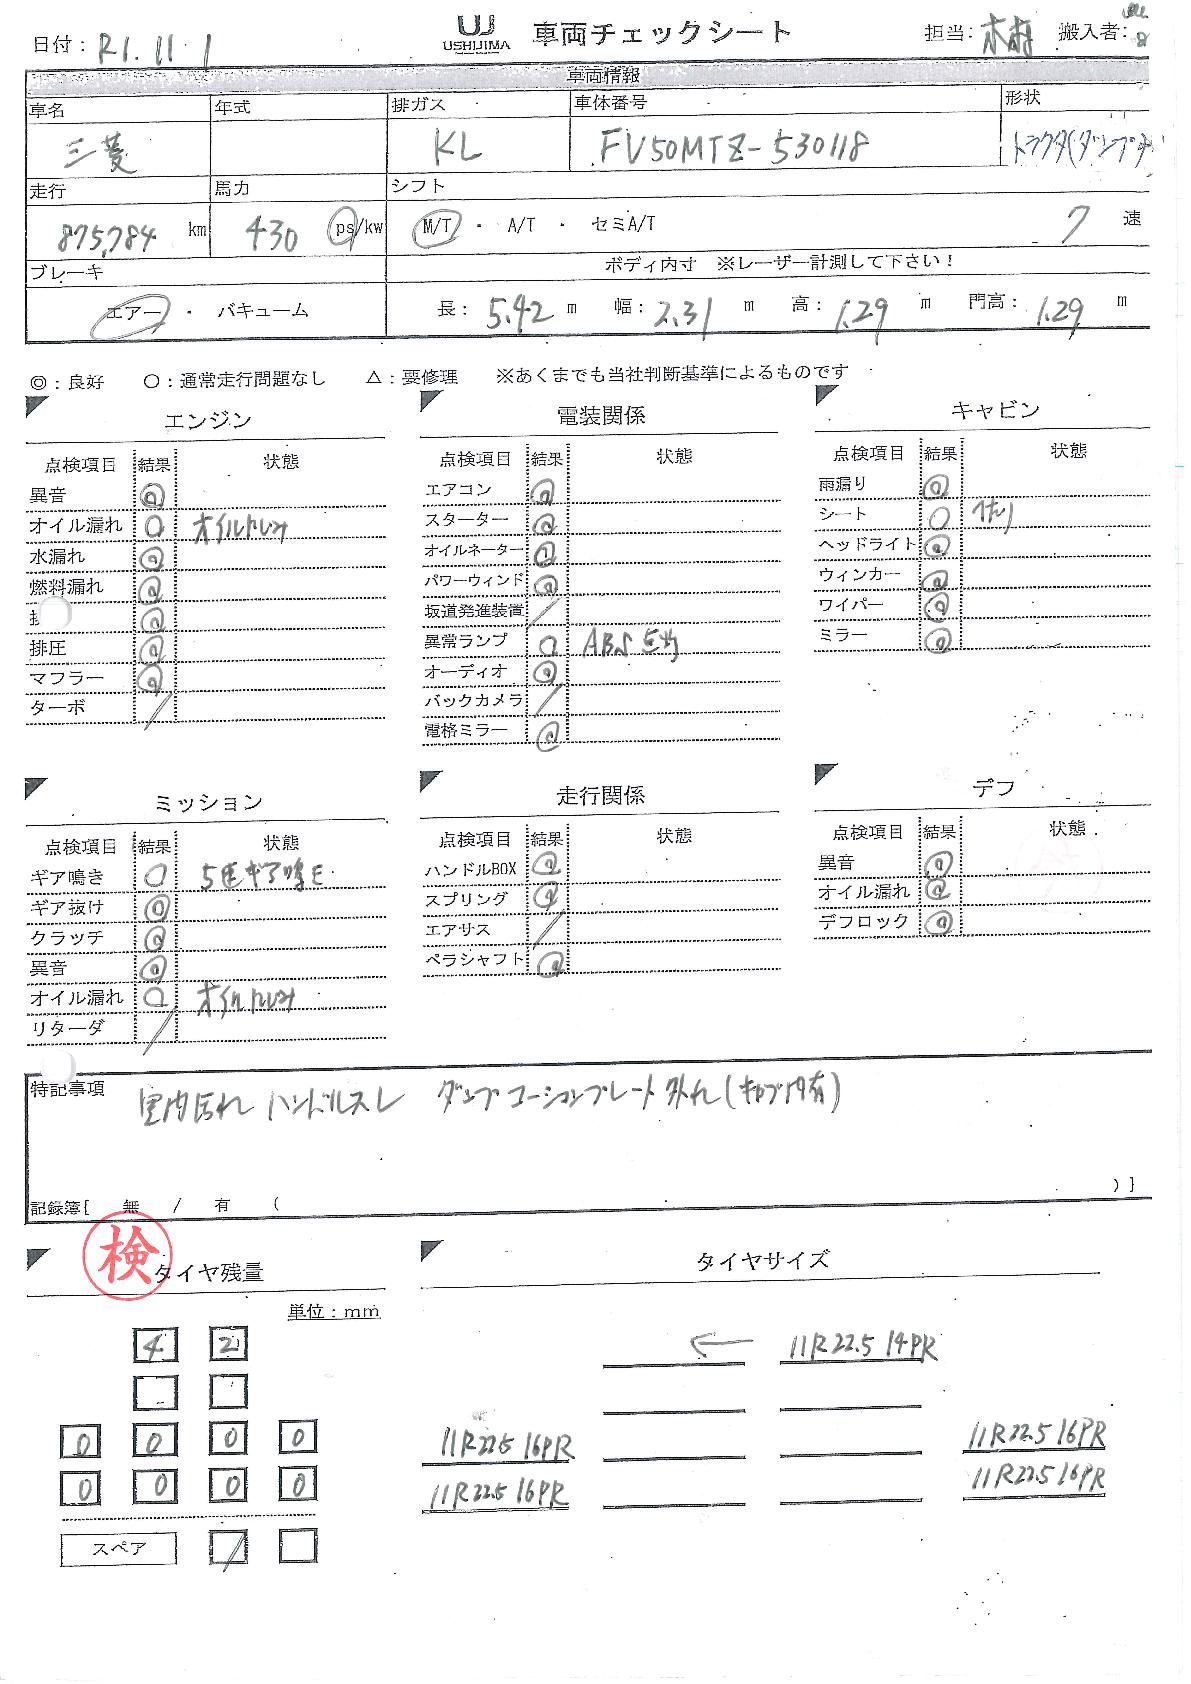 日付： R1.11.1
USHIJIMA
車両チェックシート
担当：
搬入者：
車両情報
車名 年式 排ガス 車体番号 形状
三菱 KL FV50MTZ-530118 トラクタ(ダンプ
走行 馬力 シフト
875,784 km 430 ps/kw M/T ・ A/T ・ セミA/T 7 速
ブレーキ ボディ内寸 ※レーザー計測して下さい！
エアー ・ バキューム 長： 5.42 m 幅： 2.31 m 高： 1.29 m 門高： 1.29 m
◎：良好 〇：通常走行問題なし △：要修理 ※あくまでも当社判断基準によるものです
エンジン
点検項目 結果 状態
異音 ◎
オイル漏れ 〇 オイルトレブ
水漏れ ◎
燃料漏れ ◎
◎
排圧 ◎
マフラー ◎
ターボ /
電装関係
点検項目 結果 状態
エアコン ◎
スターター ◎
オイルネーター ◎
パワーウィンド ◎
坂道発進装置 /
異常ランプ 〇 ABS 点灯
オーディオ ◎
バックカメラ /
電格ミラー ◎
キャビン
点検項目 結果 状態
雨漏り ◎
シート 〇
ヘッドライト ◎
ウィンカー ◎
ワイパー ◎
ミラー ◎
ミッション
点検項目 結果 状態
ギア鳴き 〇 5速ギア鳴き
ギア抜け ◎
クラッチ ◎
異音 ◎
オイル漏れ 〇
リターダ /
走行関係
点検項目 結果 状態
ハンドルBOX ◎
スプリング ◎
エアサス /
ペラシャフト ◎
デフ
点検項目 結果 状態
異音 ◎
オイル漏れ ◎
デフロック ◎
特記事項
室内汚れ ハンドルスレ ダンプコーションプレート外れ(キャブ内有)
記録簿[ 無 / 有 ( )]
検
タイヤ残量
単位：mm
4 2
0 0 0 0
0 0 0 0
スペア /
タイヤサイズ
← 11R22.5 14PR
11R22.5 16PR 11R22.5 16PR
11R22.5 16PR 11R22.5 16PR